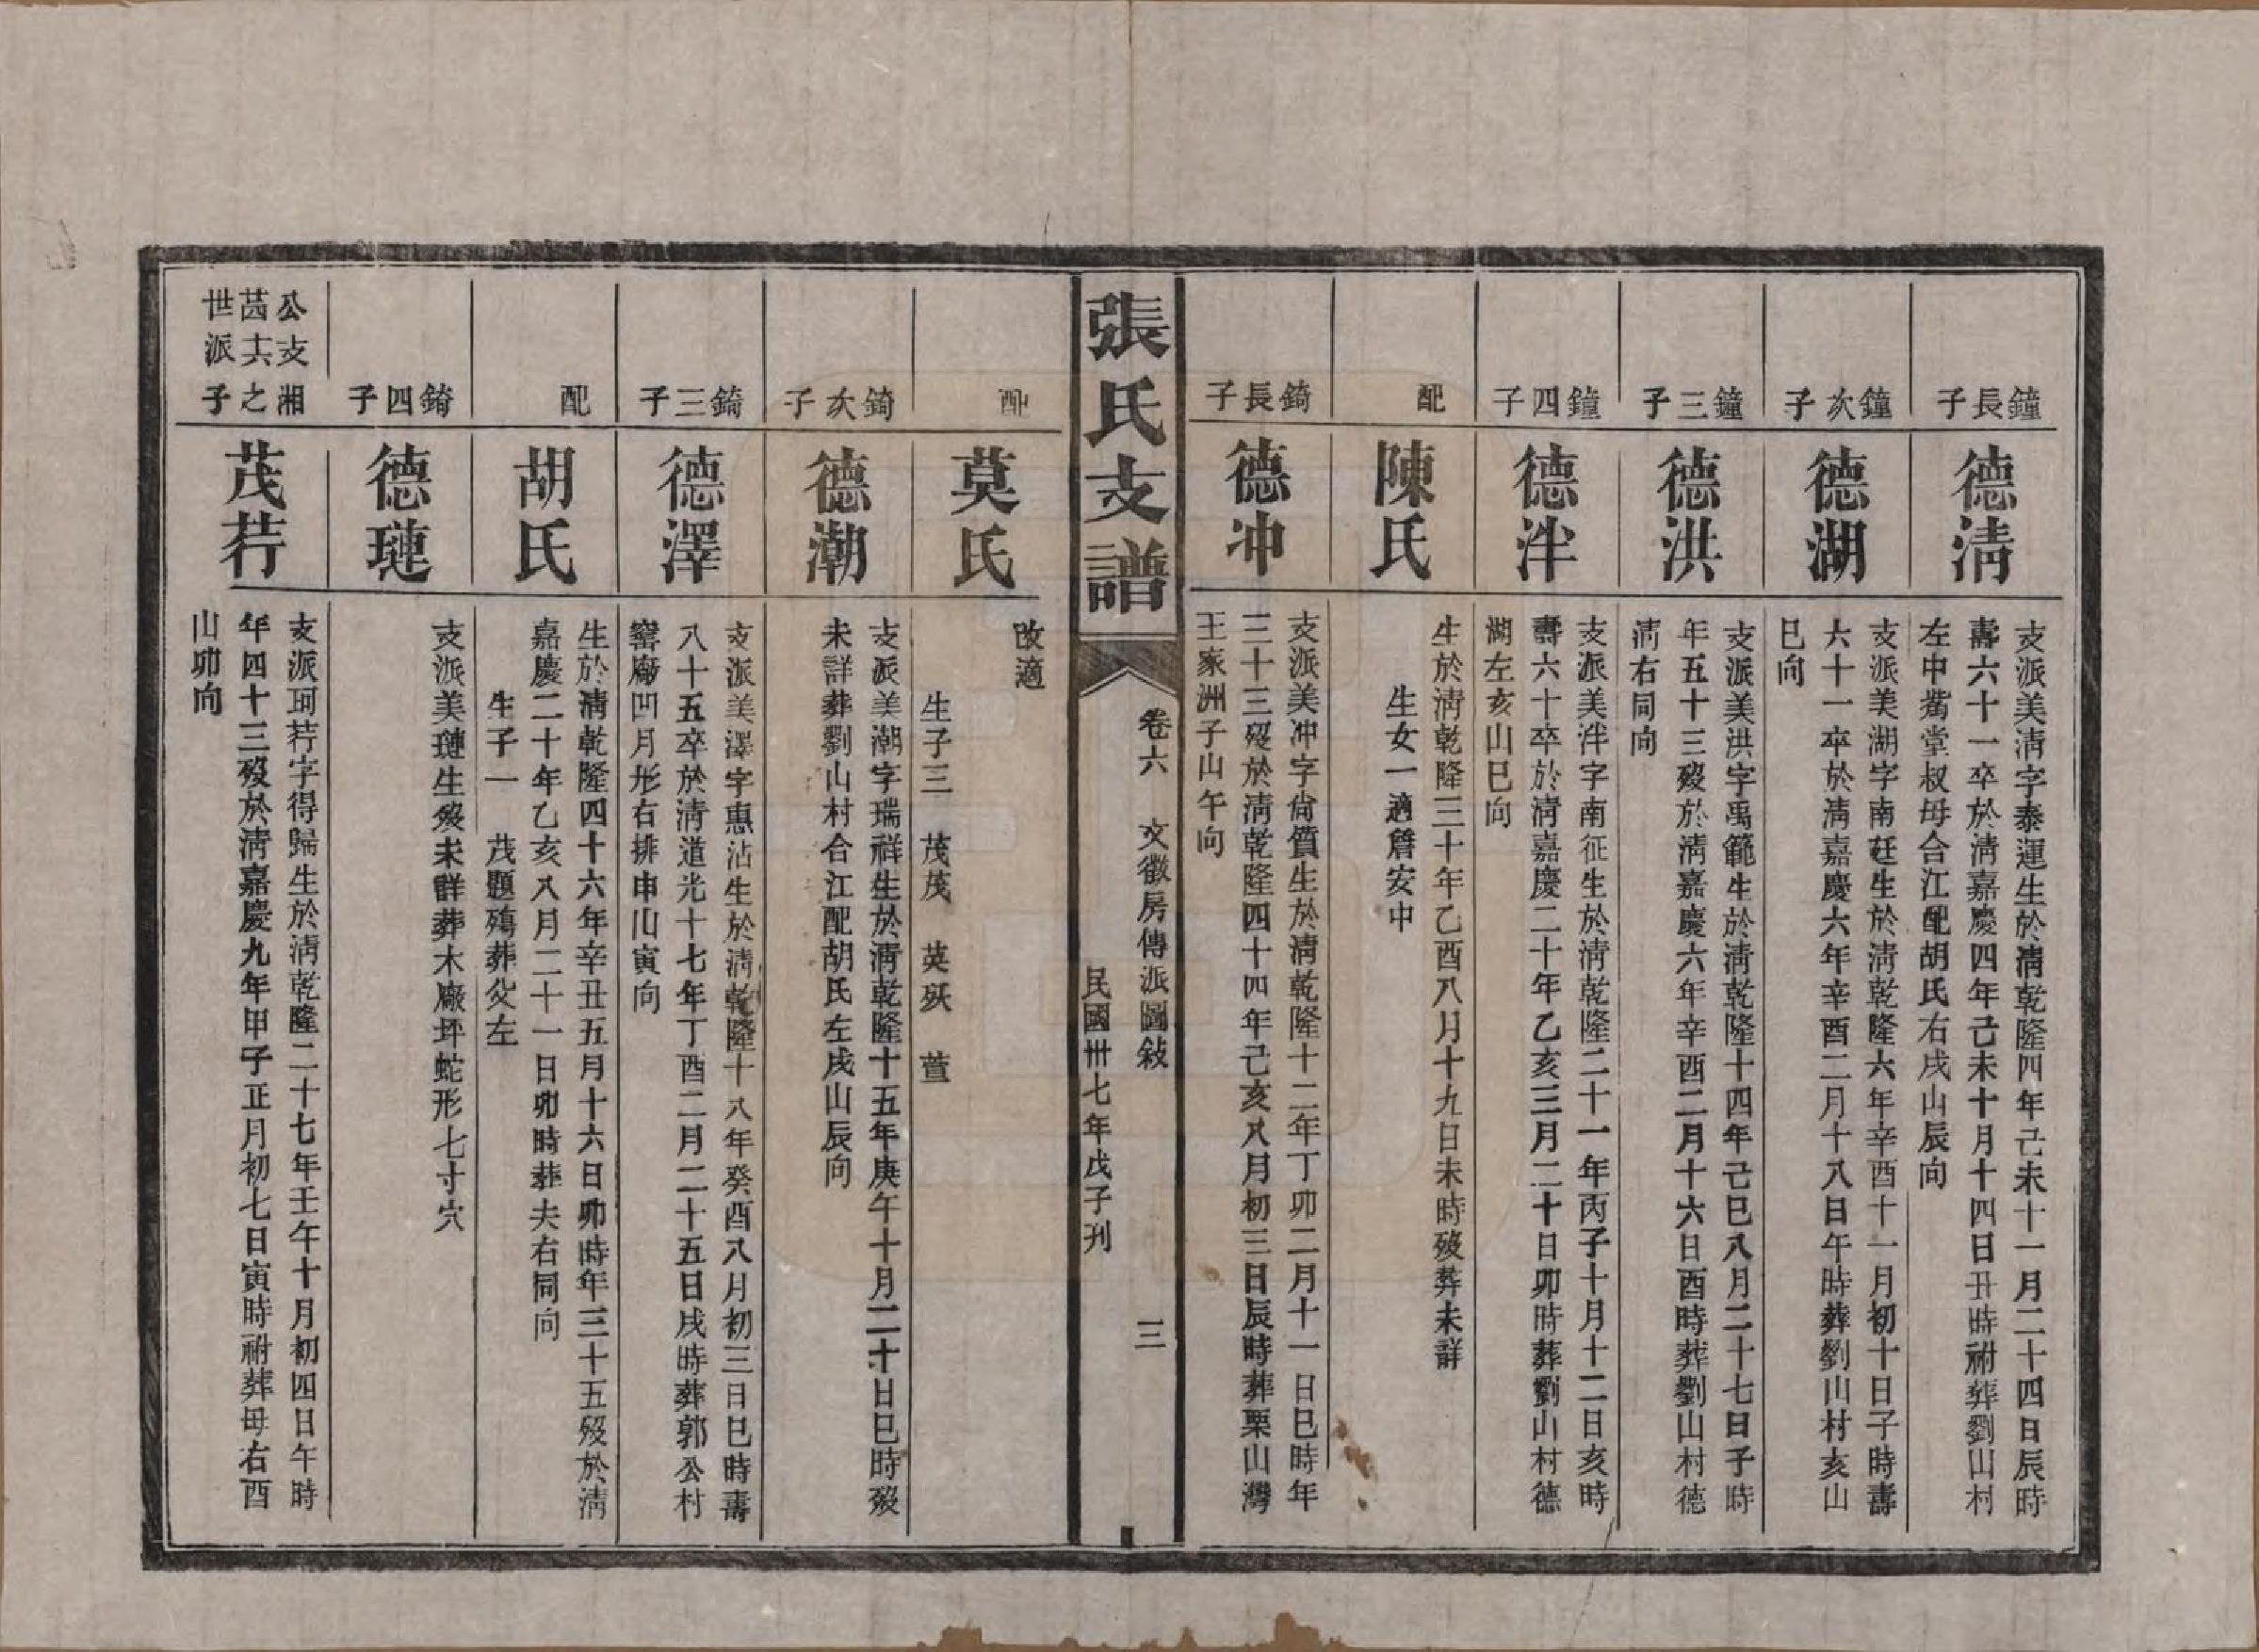 鐘長子
德清
支派美清字泰運生於清乾隆四年己未十一月二十四日辰時
壽六十一卒於清嘉慶四年己未十月十四日丑時祔葬劉山村
左中觜堂叔母合江配胡氏右戌山辰向
鐘次子
德湖
支派美湖字南廷生於清乾隆六年辛酉十一月初十日子時壽
六十一卒於清嘉慶六年辛酉二月十八日午時葬劉山村亥山
巳向
鐘三子
德洪
支派美洪字禹範生於清乾隆十四年己巳八月二十七日子時
年五十三歿於清嘉慶六年辛酉二月十六日酉時葬劉山村德
清右同向
鐘四子
德泮
支派美泮字南征生於清乾隆二十一年丙子十月十二日亥時
壽六十卒於清嘉慶二十年乙亥三月二十日卯時葬劉山村德
湖左亥山巳向
配
陳氏
生於清乾隆三十年乙酉八月十九日未時歿葬未詳
生女一適詹安中
錡長子
德冲
支派美冲字尙質生於清乾隆十二年丁卯二月十一日巳時年
三十三歿於清乾隆四十四年己亥八月初三日辰時葬栗山灣
王家洲子山午向
張氏支譜
卷六 文徽房傳派圖敍 三
民國卅七年戊子刋
配
莫氏
改適
生子三 茂茂 英殀 萱
錡次子
德潮
支派美潮字瑞祥生於清乾隆十五年庚午十月二十日巳時歿
未詳葬劉山村合江配胡氏左戌山辰向
錡三子
德澤
支派美澤字惠沾生於清乾隆十八年癸酉八月初三日巳時壽
八十五卒於清道光十七年丁酉二月二十五日戌時葬郭公村
窰廠凹月形右排申山寅向
配
胡氏
生於清乾隆四十六年辛丑五月十六日卯時年三十五歿於清
嘉慶二十年乙亥八月二十一日卯時葬夫右同向
生子一 茂題殤葬父左
錡四子
德璉
支派美璉生歿未詳葬木廠坪蛇形七寸穴
公支湘
茜十六之
世派子
茂荇
支派珂荇字得歸生於清乾隆二十七年壬午十月初四日午時
年四十三歿於清嘉慶九年甲子正月初七日寅時祔葬母右酉
山卯向